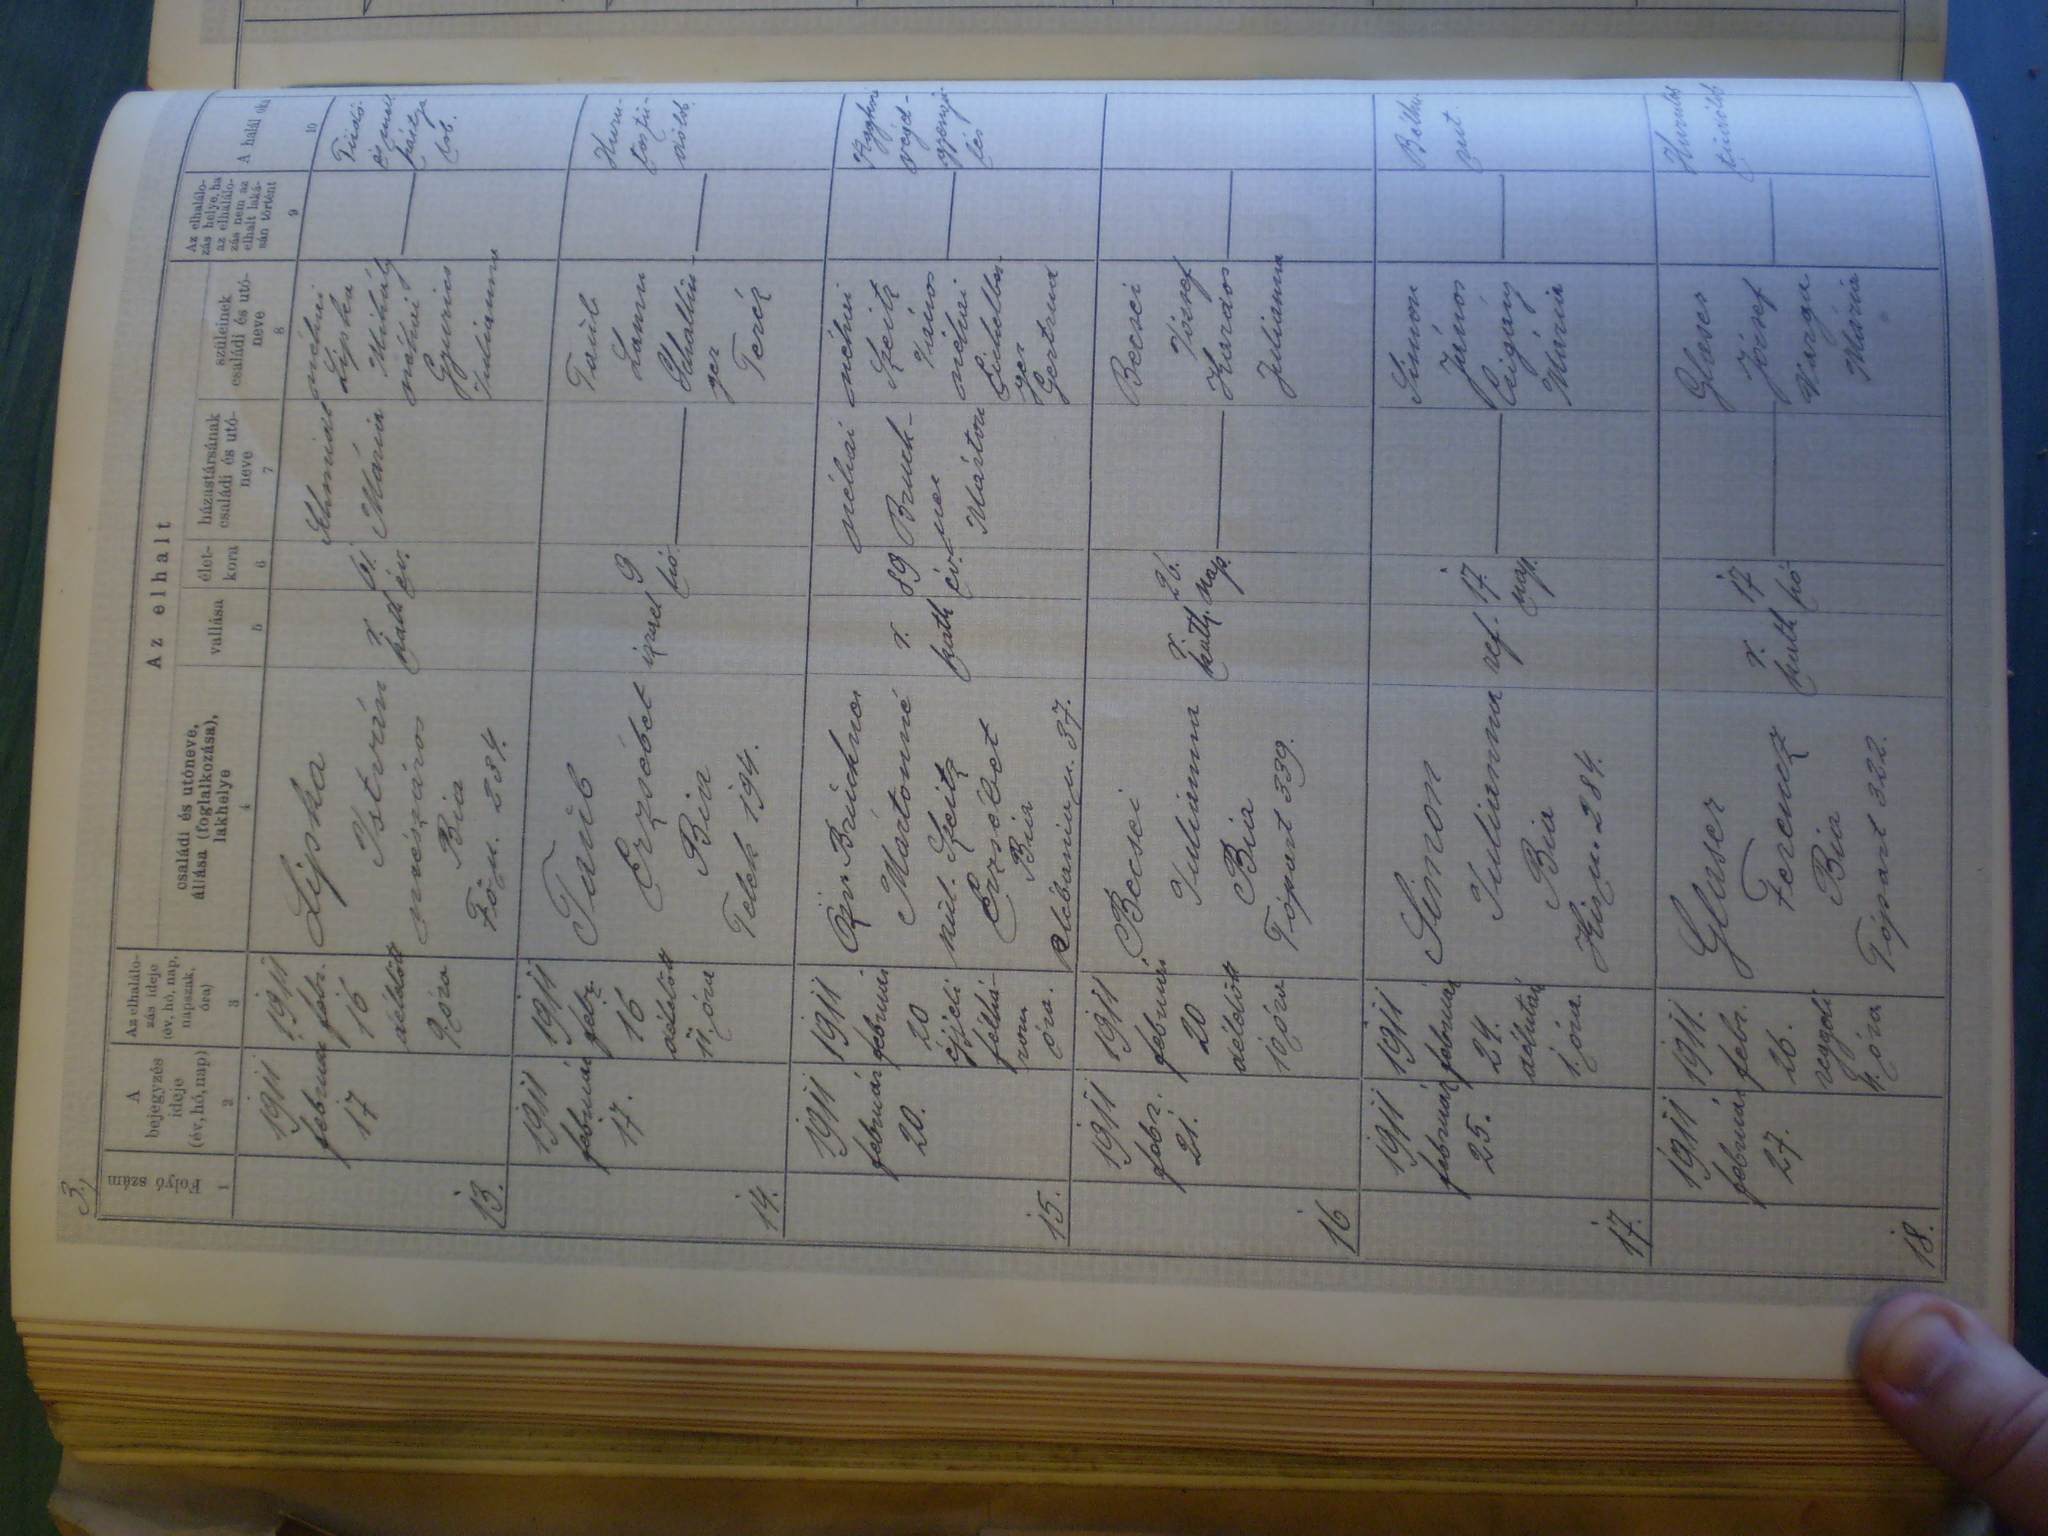 3.
Az elhalt
Folyó szám
A
bejegyzés
ideje
(év, hó, nap)
Az elhalálo-
zás ideje
(év, hó, nap,
napszak,
óra)
családi és utóneve,
állása (foglalkozása),
lakhelye
vallása
élet-
kora
házastársának
családi és utó-
neve
szüleinek
családi és utó-
neve
Az elhalálo-
zás helye, ha
az elhalálo-
zás nem az
elhalt laká-
sán történt
A halál oka
1
2
3
4
5
6
7
8
9
10
13.
1911
február
17
1911
febr.
16
délelőtt
9 óra
Lipka
István
mészáros
Bia
Fő u. 234.
r.
kath
év.
Mária
néhai
Lipka
Mihály
néhai
Gyurics
Julianna
Tüdő
és
14.
1911
február
17.
1911
febr.
16
délelőtt
11 óra
Taub
Erzsébet
Bia
Telek 194.
izrael
9
hó.
Taub
Samu
Teréz
Huru-
tos tü-
dőlob.
15.
1911
február
20.
1911
február
20
éjjeli
félhá-
rom
óra.
Özv. Bruckner
Mártonné
szül. Szeitz
Erzsébet
Bia
Plébánia u. 37.
r.
kath
89
év.
néhai
Bruck-
ner
Márton
néhai
Szeitz
János
néhai
ger
Gertrud
végel-
gyengü-
lés
16
1911
febr.
21.
1911
február
20
délelőtt
10 óra
Becsei
Julianna
Bia
Tópart 339.
r.
kath.
26.
nap.
Becsei
József
Julianna
17.
1911
február
25.
1911
február
24.
délután
1 óra.
Simon
Julianna
Bia
Kis u. 284.
ref.
17.
nap.
Simon
János
Czigány
Mária
Bélhu-
rut.
18.
1911
február
27.
1911.
febr.
26.
reggeli
4 óra
Glaser
Ferencz
Bia
Tópart 322.
r.
kath
17
hó
Glaser
József
Varga
Mária
Hurutos
tüdőlob